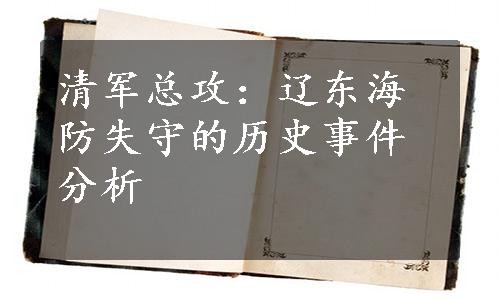 清军总攻：辽东海
防失守的历史事件
分析